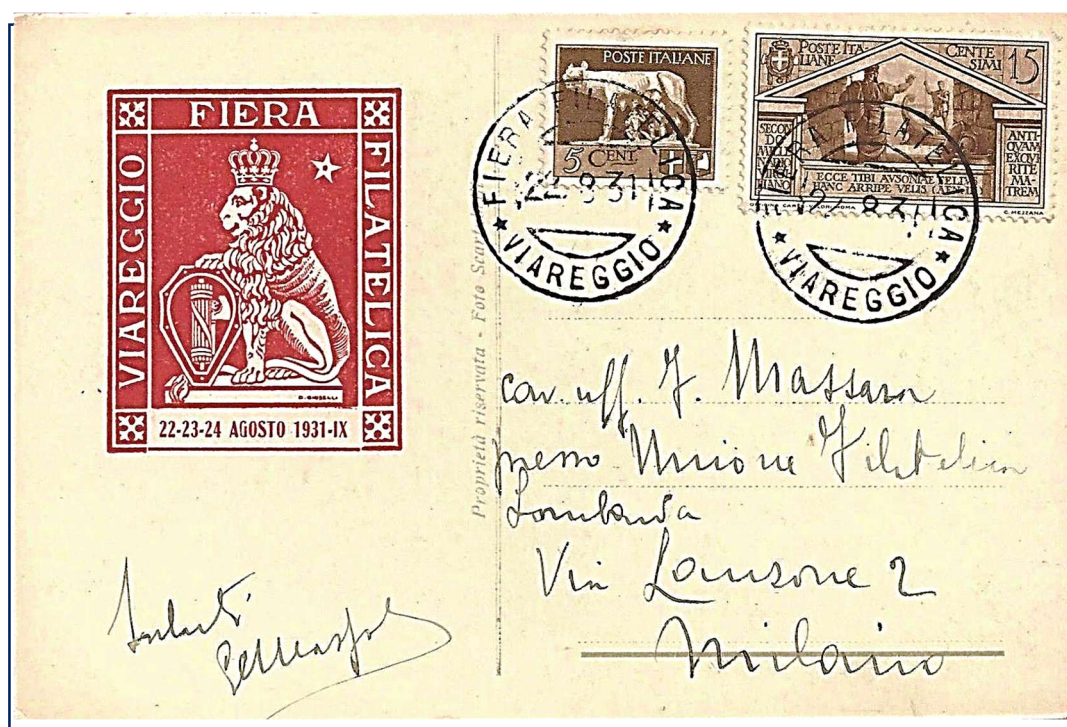 FIERA
VIAREGGIO
FILATELICA
D. GIUSELLI
22-23-24 AGOSTO 1931-IX
POSTE ITALIANE
5 CENT.
POSTE ITA-
LIANE
CENTE
SIMI
15
SECON
DO
ANTI-
QVAM
EXQVI
RITE
MA-
TREM
ECCE TIBI AVSONIAE TELLVS
HANC ARRIPE VELIS
C. MEZZANA
FIERA FILATELICA
22 8 31
* VIAREGGIO *
FIERA FILATELICA
8 31
* VIAREGGIO *
Proprietà riservata - Foto
cav. uff. J. Massara
presso Unione Filatelica
Lombarda
Via Lanzone 2
Milano
Saluti